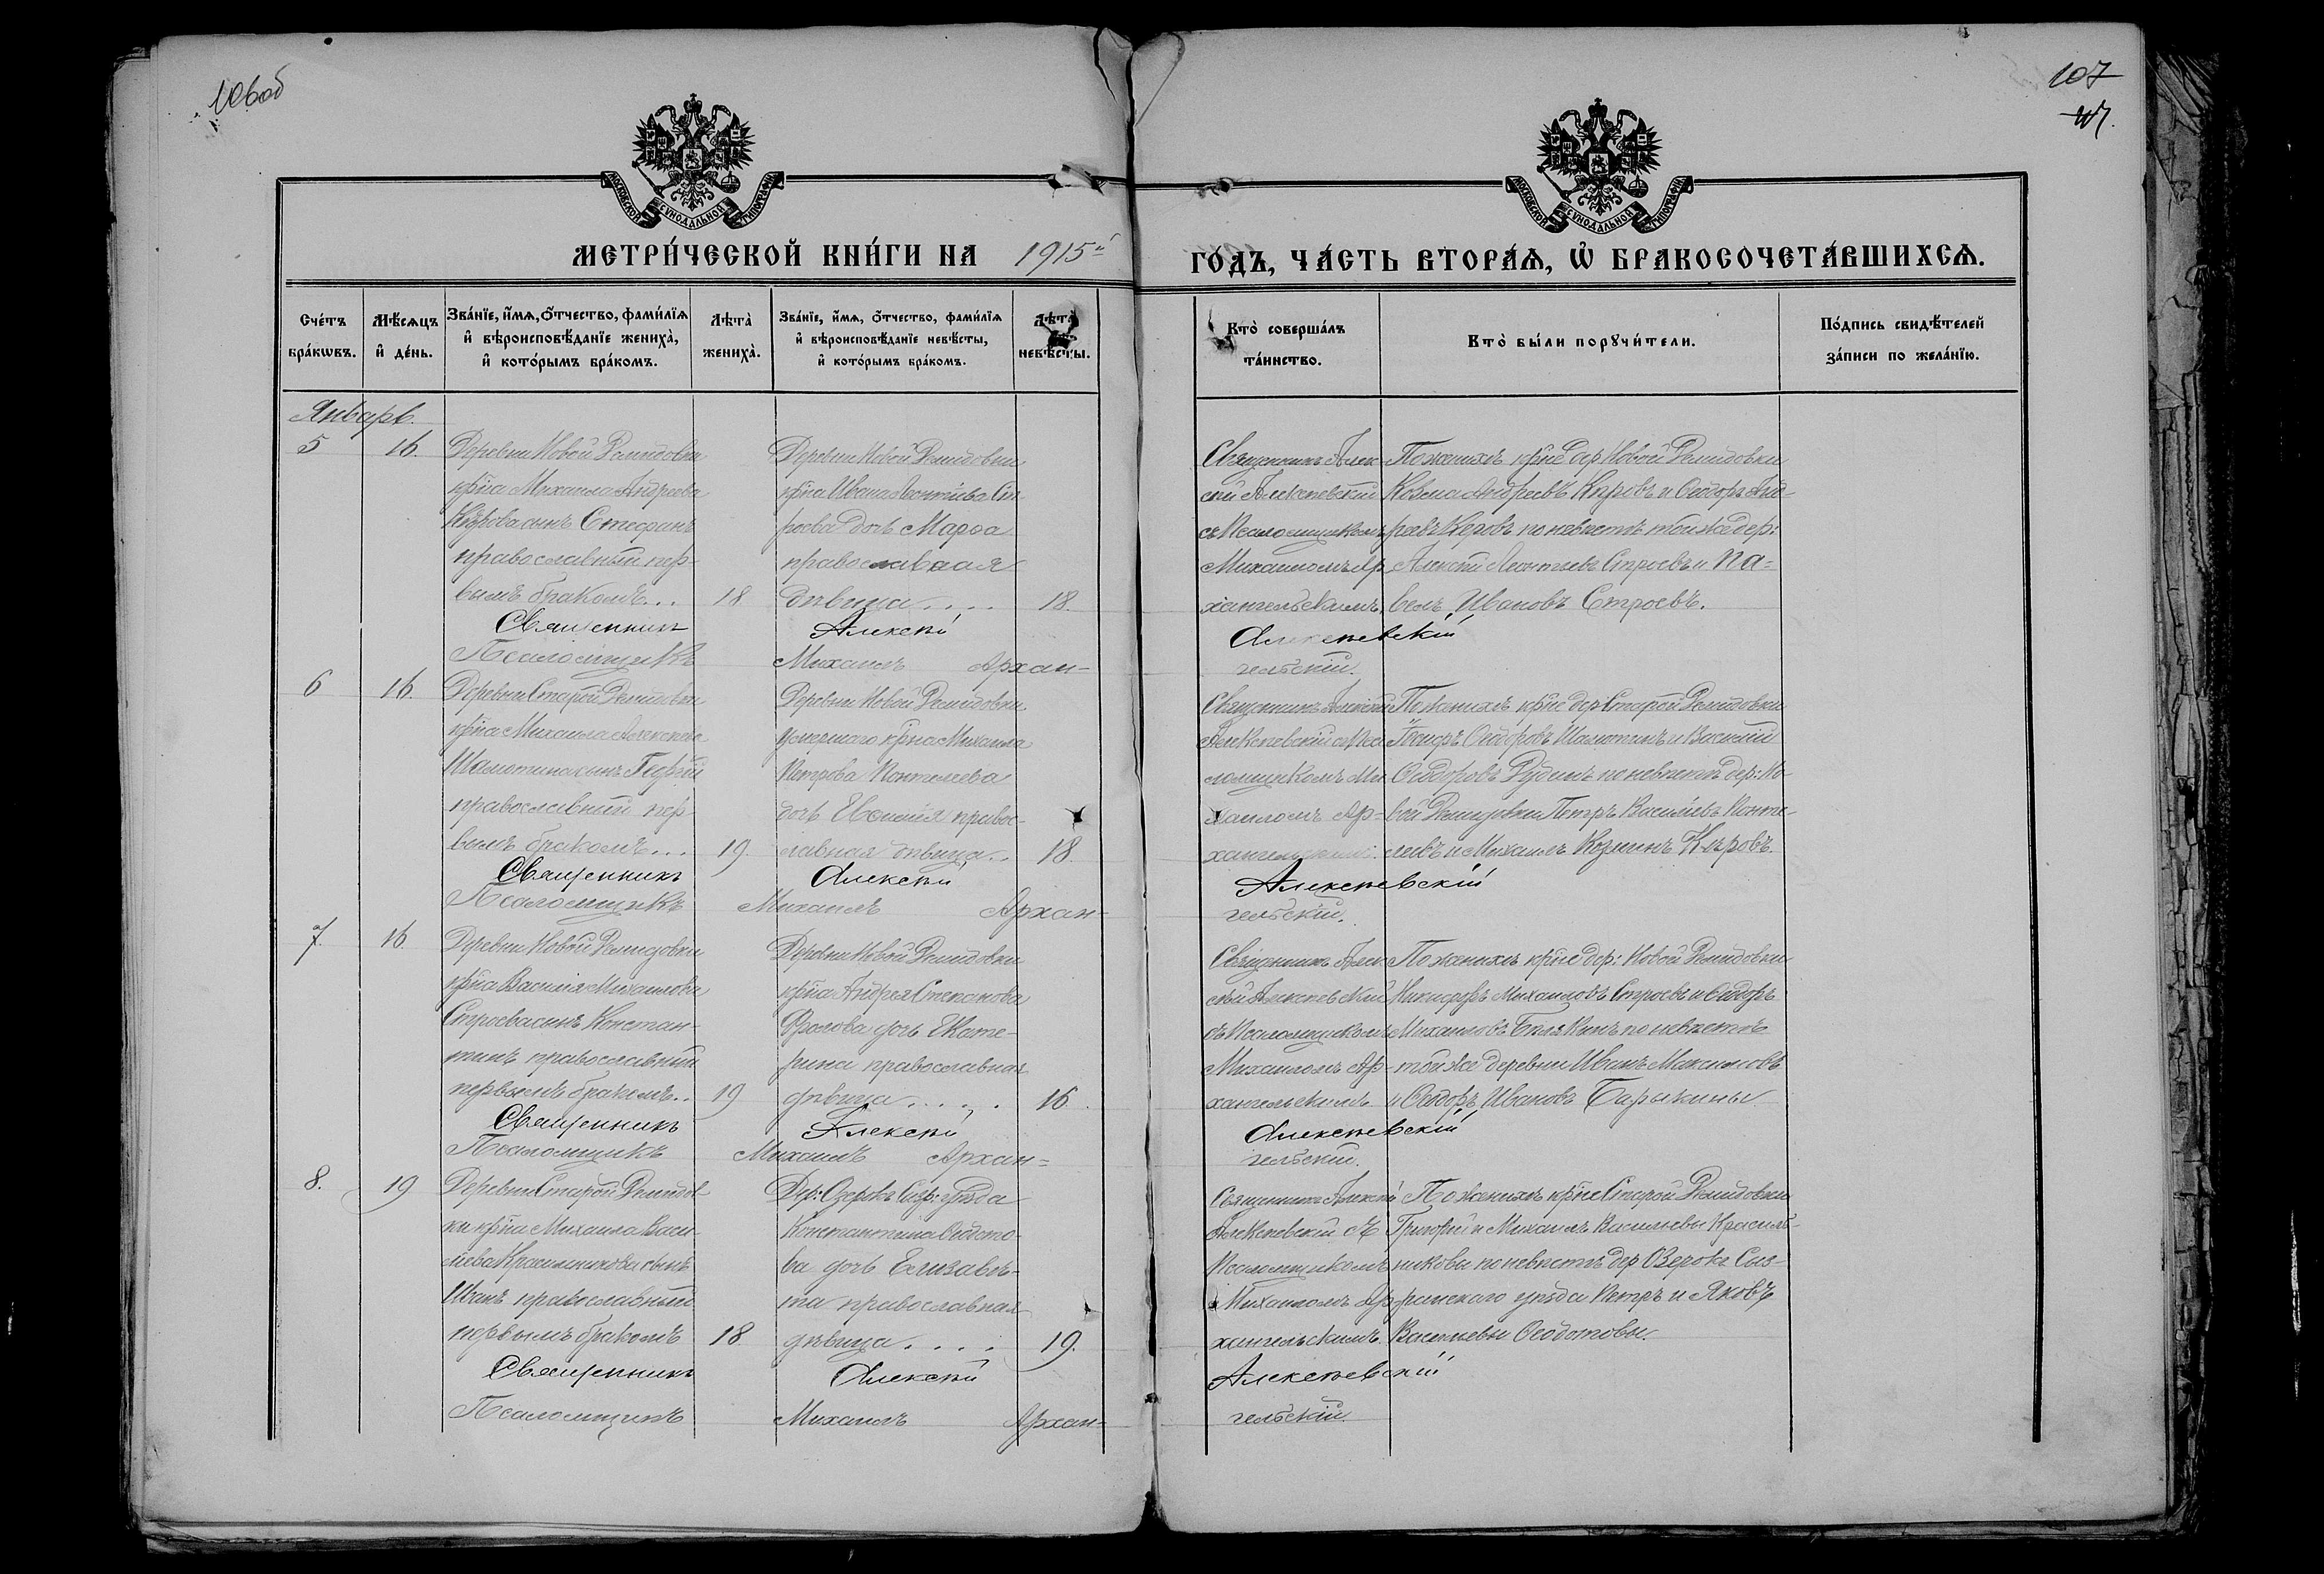 106об
107
МОСКОВСКОЙ СѴНОДАЛЬНОЙ ТИПОГРАФІИ
МОСКОВСКОЙ СѴНОДАЛЬНОЙ ТИПОГРАФІИ
МЕТРИ́ЧЕСКОЙ КНИ́ГИ НА 1915й
ГО́ДЪ, ЧА́СТЬ ВТОРА́Ѧ, Ѽ БРАКОСОЧЕТА́ВШИХСѦ.
Сче́тъ бра́кѡвъ.
Мѣ́сѧцъ и҆ де́нь.
Зва́нїе, и҆́мѧ, ѻ҆́тчество, фами́лїѧ
и҆ вѣроисповѣ́данїе женихà,
и҆ кото́рымъ бра́комъ.
Лѣтà женихà.
Зва́нїе, и҆́мѧ, ѻ҆́тчество, фами́лїѧ
и҆ вѣроисповѣ́данїе невѣ́сты,
и҆ кото́рымъ бра́комъ.
Лѣтà невѣ́сты.
Кто̀ соверша́лъ
та́инство.
Кто̀ бы́ли порꙋчи́тели.
По́дпись свидѣ́телей
за́писи по жела́нїю.
Январь.
5
16.
Деревни Новой Демидовки
кр̃на Михаила Андреева
Кирова сынъ Стефанъ
православный пер-
вымъ бракомъ...
18
Деревни Новой Демидовки
кр̃на Ивана Леонтіева Ст-
роева дочь Марѳа
православная
дѣвица....
18.
Священникъ Алек-
сій Алексѣевскій
съ Псаломщикомъ
Михаиломъ Ар
хангельскимъ.
По женихѣ кр̃не дер Новой Демидовки
Козма Андреевъ Кировъ и Ѳеодоръ Анд-
реевъ Кировъ по невѣстѣ той же дер:
Алексій Леонтьевъ Строевъ и Па-
велъ Ивановъ Строевъ.
Священникъ Алексѣй Алексѣевскій
Псаломщикъ Михаилъ Архан-
гельскій.
6
16.
Деревни Старой Демидовки
кр̃на Михаила Алексѣева
Шалютина сынъ Георгій
православный пер-
вымъ бракомъ...
19.
Деревни Новой Демидовки
умершаго кр̃на Михаила
Петрова Контелева
дочь Евѳимія правос-
лавная дѣвица..
18.
Священникъ Алексѣй
Алексѣевскій съ Пса
ломщикомъ Ми
хаиломъ Ар-
хангельскимъ.
По женихѣ кр̃не дер Старой Демидовки
Ѳеодоровъ Шалютинъ и Василій
Ѳеодоровъ Рудинъ по невѣстѣ дер: Но-
вой Демидовки Петръ Васильевъ Конте-
левъ и Михаилъ Козминъ Кировъ.
Священникъ Алексѣй Алексѣевскій
Псаломщикъ Михаилъ Архан-
гельскій.
7.
16.
Деревни Новой Демидовки
кр̃на Василія Михаилова
Строева сынъ Констан-
тинъ православный
первымъ бракомъ..
19
Деревни Новой Демидовки
кр̃на Андрея Степанова
Фролова дочь Екате-
рина православная
дѣвица.....
16.
Священникъ Алек
сѣй Алексѣевскій
съ Псаломщикомъ
Михаиломъ Ар-
хангельскимъ
По женихѣ кр̃не дер: Новой Демидовки
Никифоръ Михаиловъ Строевъ и Ѳеодоръ
Михаиловъ Билякинъ по невѣстѣ
той же деревни Иванъ Максимовъ
и Ѳеодоръ Ивановъ Барыкины
Священникъ Алексѣй Алексѣевскій
Псаломщикъ Михаилъ Архан=
гельскій.
8.
19
Деревни Старой Демидов
ки кр̃на Михаила Васи-
лiева Красильникова сынъ
Иванъ православный
первымъ бракомъ
18.
Дер: Озерокъ Сызр: уѣзда
Константина Ѳедото-
ва дочь Елизаве-
та православная
дѣвица....
19.
Священникъ Алексѣй
Алексѣевскій съ
Псаломщикомъ
Михаиломъ Ар
хангельскимъ.
По женихѣ кр̃не Старой Демидовки
Григорій и Михаилъ Васильевы Красиль-
никовы по невѣстѣ дер Озерокъ Сыз-
ранскаго уѣзда Петръ и Яковъ
Васильевы Ѳеодотовы.
Священникъ Алексѣй Алексѣевскій
Псаломщикъ Михаилъ Архан=
гельскій.